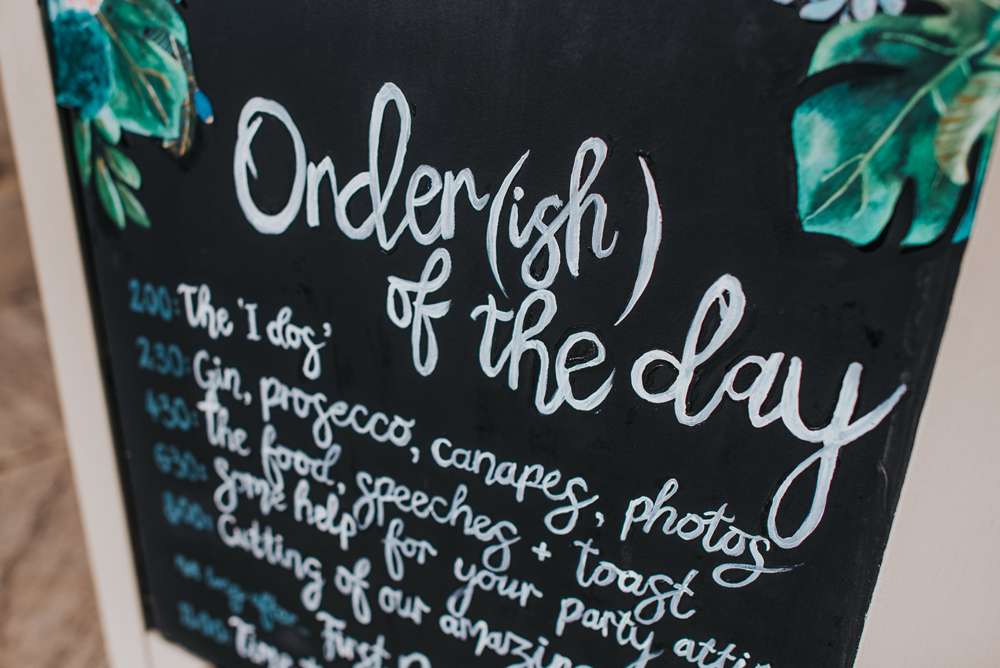 Order(ish)
of the day
2:00: The 'I dos'
2:30: Gin, prosecco, canapes, photos
4:30: The food, speeches + toast
6:30: Some help for your party
8:00: Cutting of our amazing
First
Time